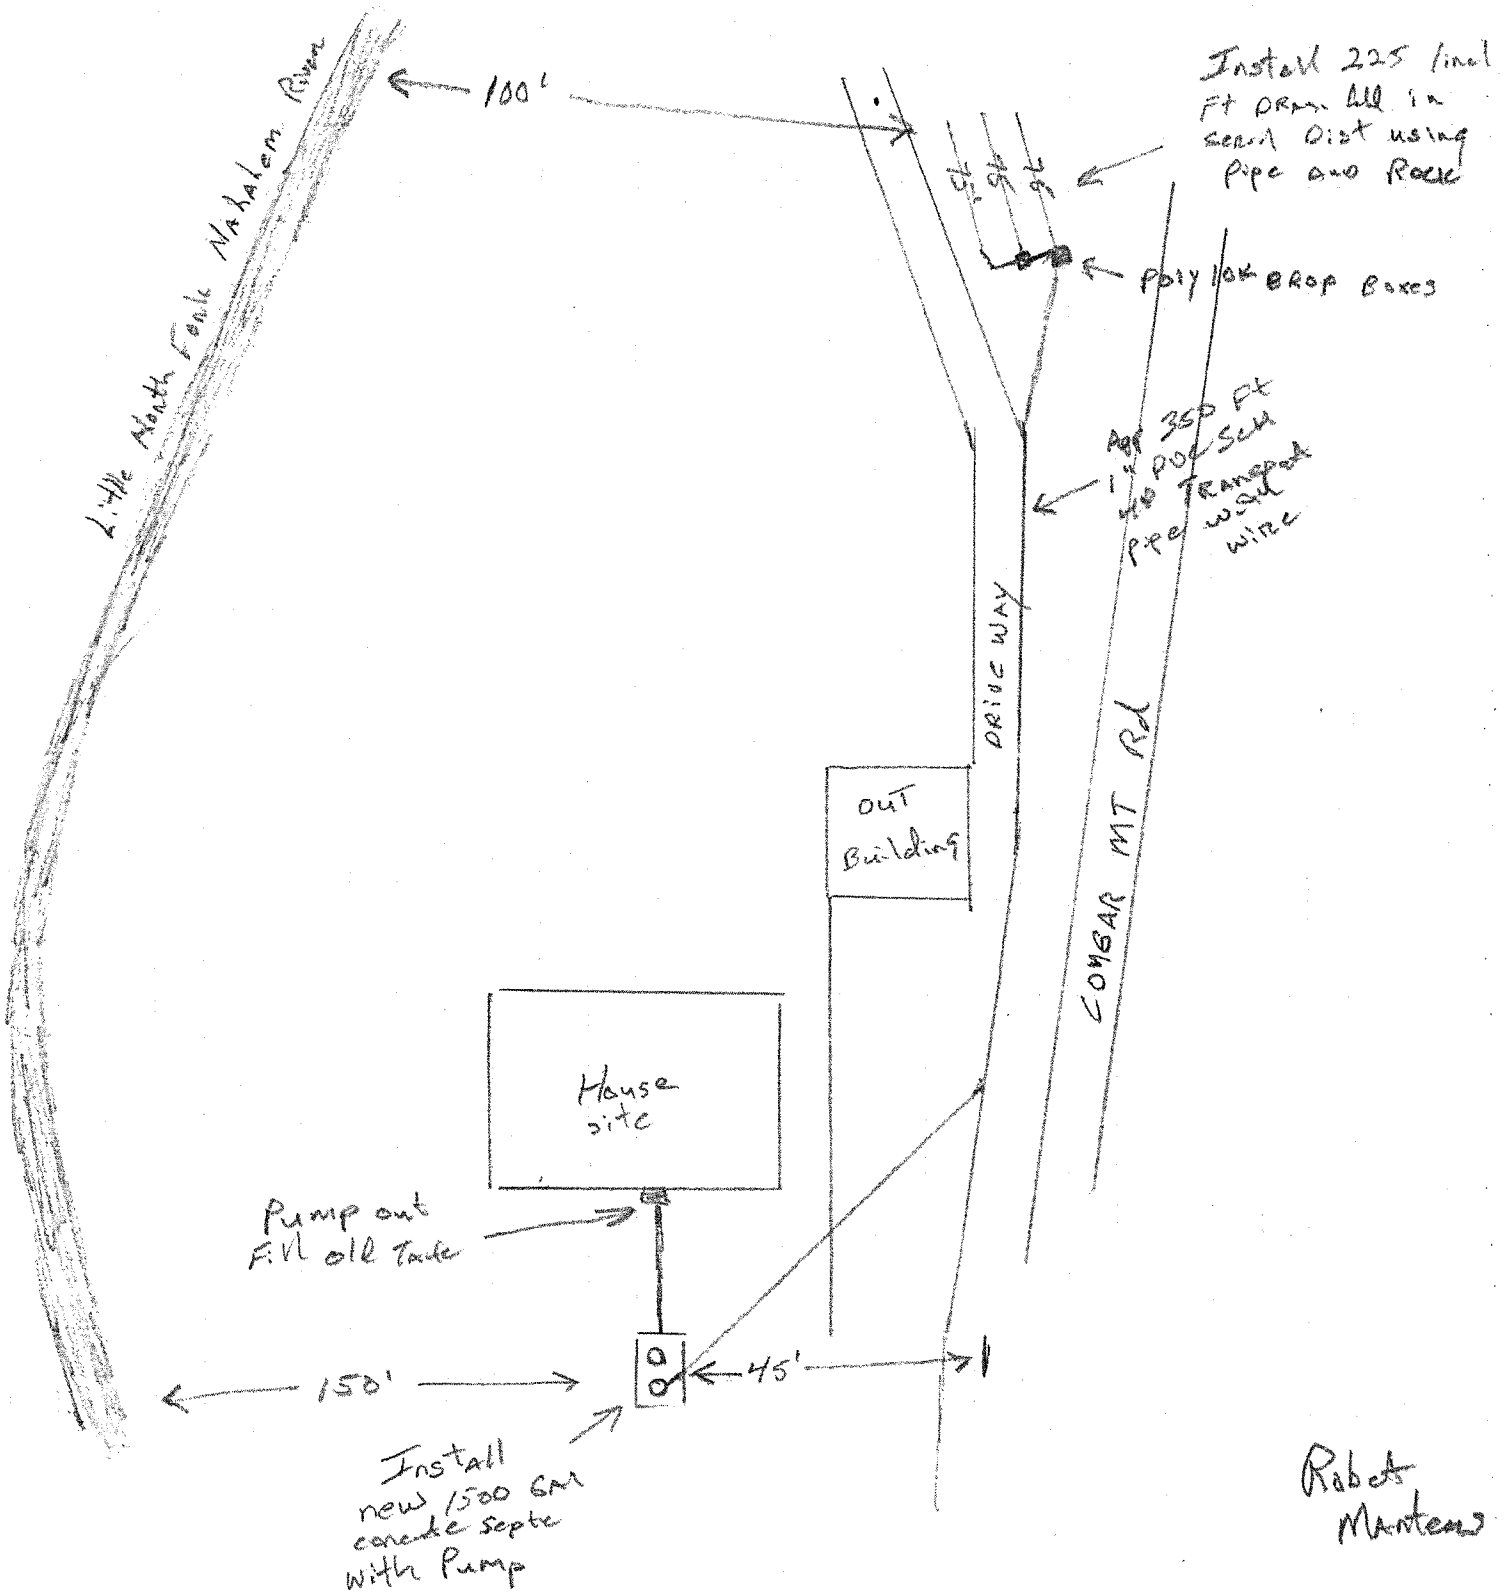 Little North Fork Nahahem River
100'
Install 225 lineal
Ft in
serial Dist using
Pipe and Rock
75'
75
75
Poly lok DROP Boxes
App 350 Ft
1" PVC Sch
40 TRANSPORT
pipe with
wire
DRIVE WAY
COUGAR MT Rd
OUT
Building
House
site
Pump out
Fill old Tank
150'
45'
Install
new 1500 GAL
septic
with Pump
Robert